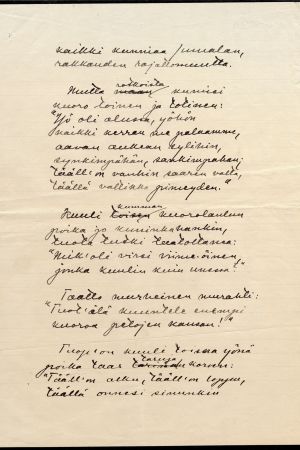 kaikki kunniaa Jumalan,
rakkauden rajattomuutta.
Mutta rotkoista kumisi
kuoro toinen ja totinen:
"Yö oli alussa, yöhön
kaikki kerran me palaamme,
aavan aukean sylihin,
synkimpähän, sankimpahan;
tääll' on vanhin saaren valta,
täällä vallitsee pimeyden."
Kuuli kumman kuorolaulun
poika jo kuninkahankin,
tuota tutki taatoltansa:
"Mik' oli virsi viimeöinen,
jonka kuulin kuin unessa?"
Taatto murheinen murahti:
"Tuot' älä kuuntele enempi
kuoroa petojen kanssa!"
Tuop' on kuuli toissa yönä
poika taas tarujen kuoron:
"Täällä on alku, täällä on loppu,
täällä onnesi sinunkin